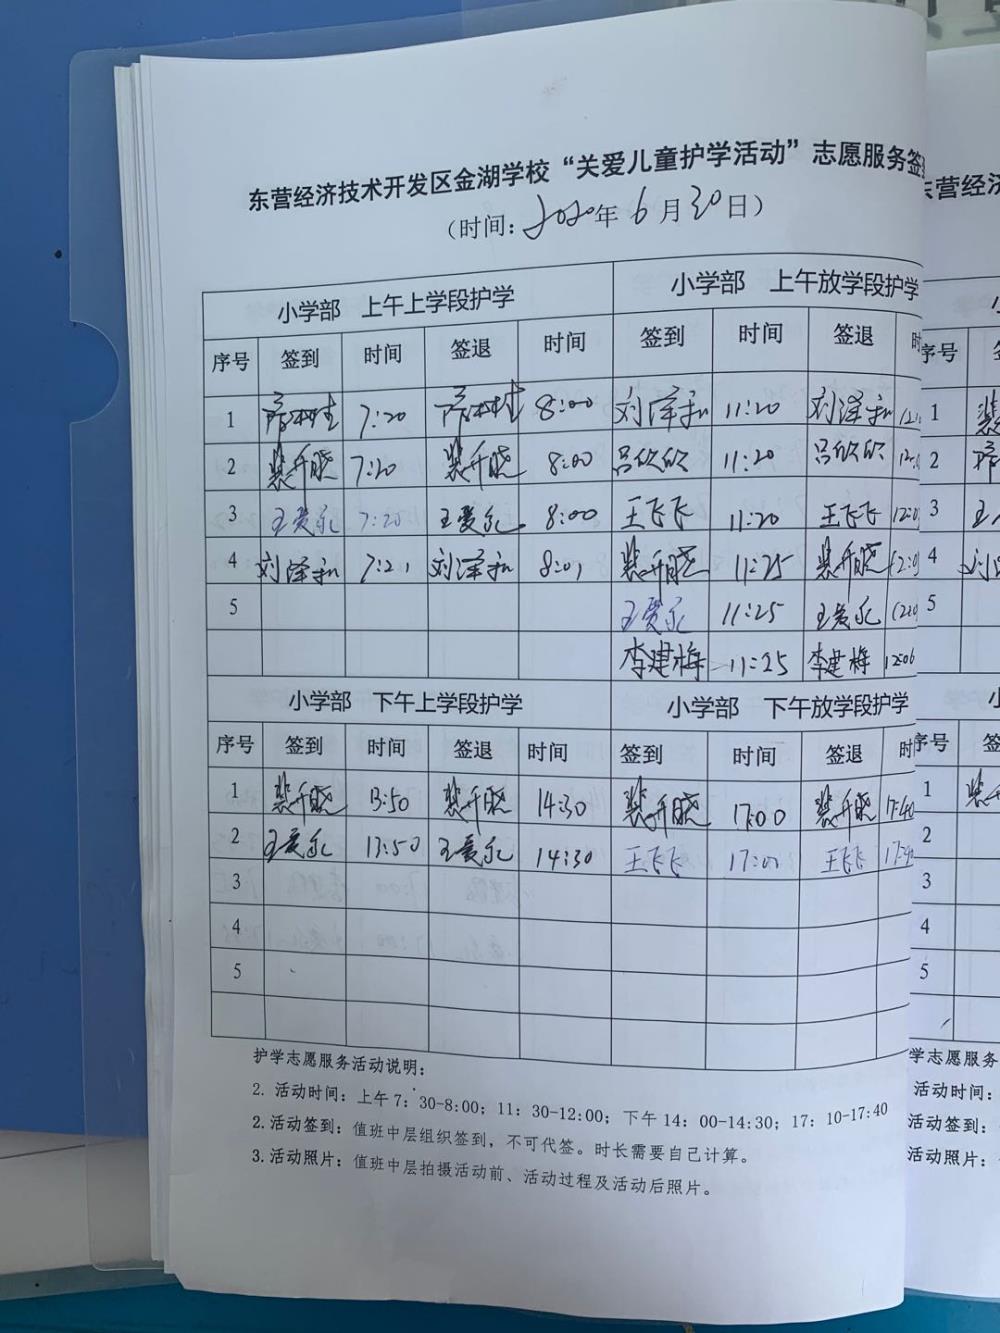 东营经济技术开发区金湖学校“关爱儿童护学活动”志愿服务签
（时间：2020年6月30日）
小学部 上午上学段护学 小学部 上午放学段护学
序号 签到 时间 签退 时间 签到 时间 签退 时
1 7:20 8:00 刘泽和 11:20 刘泽和
2 裴升晓 7:20 裴升晓 8:00 吕欣欣 11:20 吕欣欣
3 王爱永 7:20 王爱永 8:00 王飞飞 11:20 王飞飞
4 刘泽和 7:21 刘泽和 8:01 裴升晓 11:25 裴升晓
5 王爱永 11:25 王爱永
李建梅 11:25 李建梅 12:06
小学部 下午上学段护学 小学部 下午放学段护学
序号 签到 时间 签退 时间 签到 时间 签退 时
1 裴升晓 13:50 裴升晓 14:30 裴升晓 17:00 裴升晓 17:40
2 王爱永 13:50 王爱永 14:30 王飞飞 17:00 王飞飞
3
4
5
护学志愿服务活动说明：
2. 活动时间：上午7：30-8:00；11：30-12:00；下午14：00-14:30；17：10-17:40
2.活动签到：值班中层组织签到，不可代签。时长需要自己计算。
3.活动照片：值班中层拍摄活动前、活动过程及活动后照片。
东营经济
序号
1
2
3
4
5
序号
1
2
3
4
5
学志愿服务
活动时间：
活动签到：
活动照片：